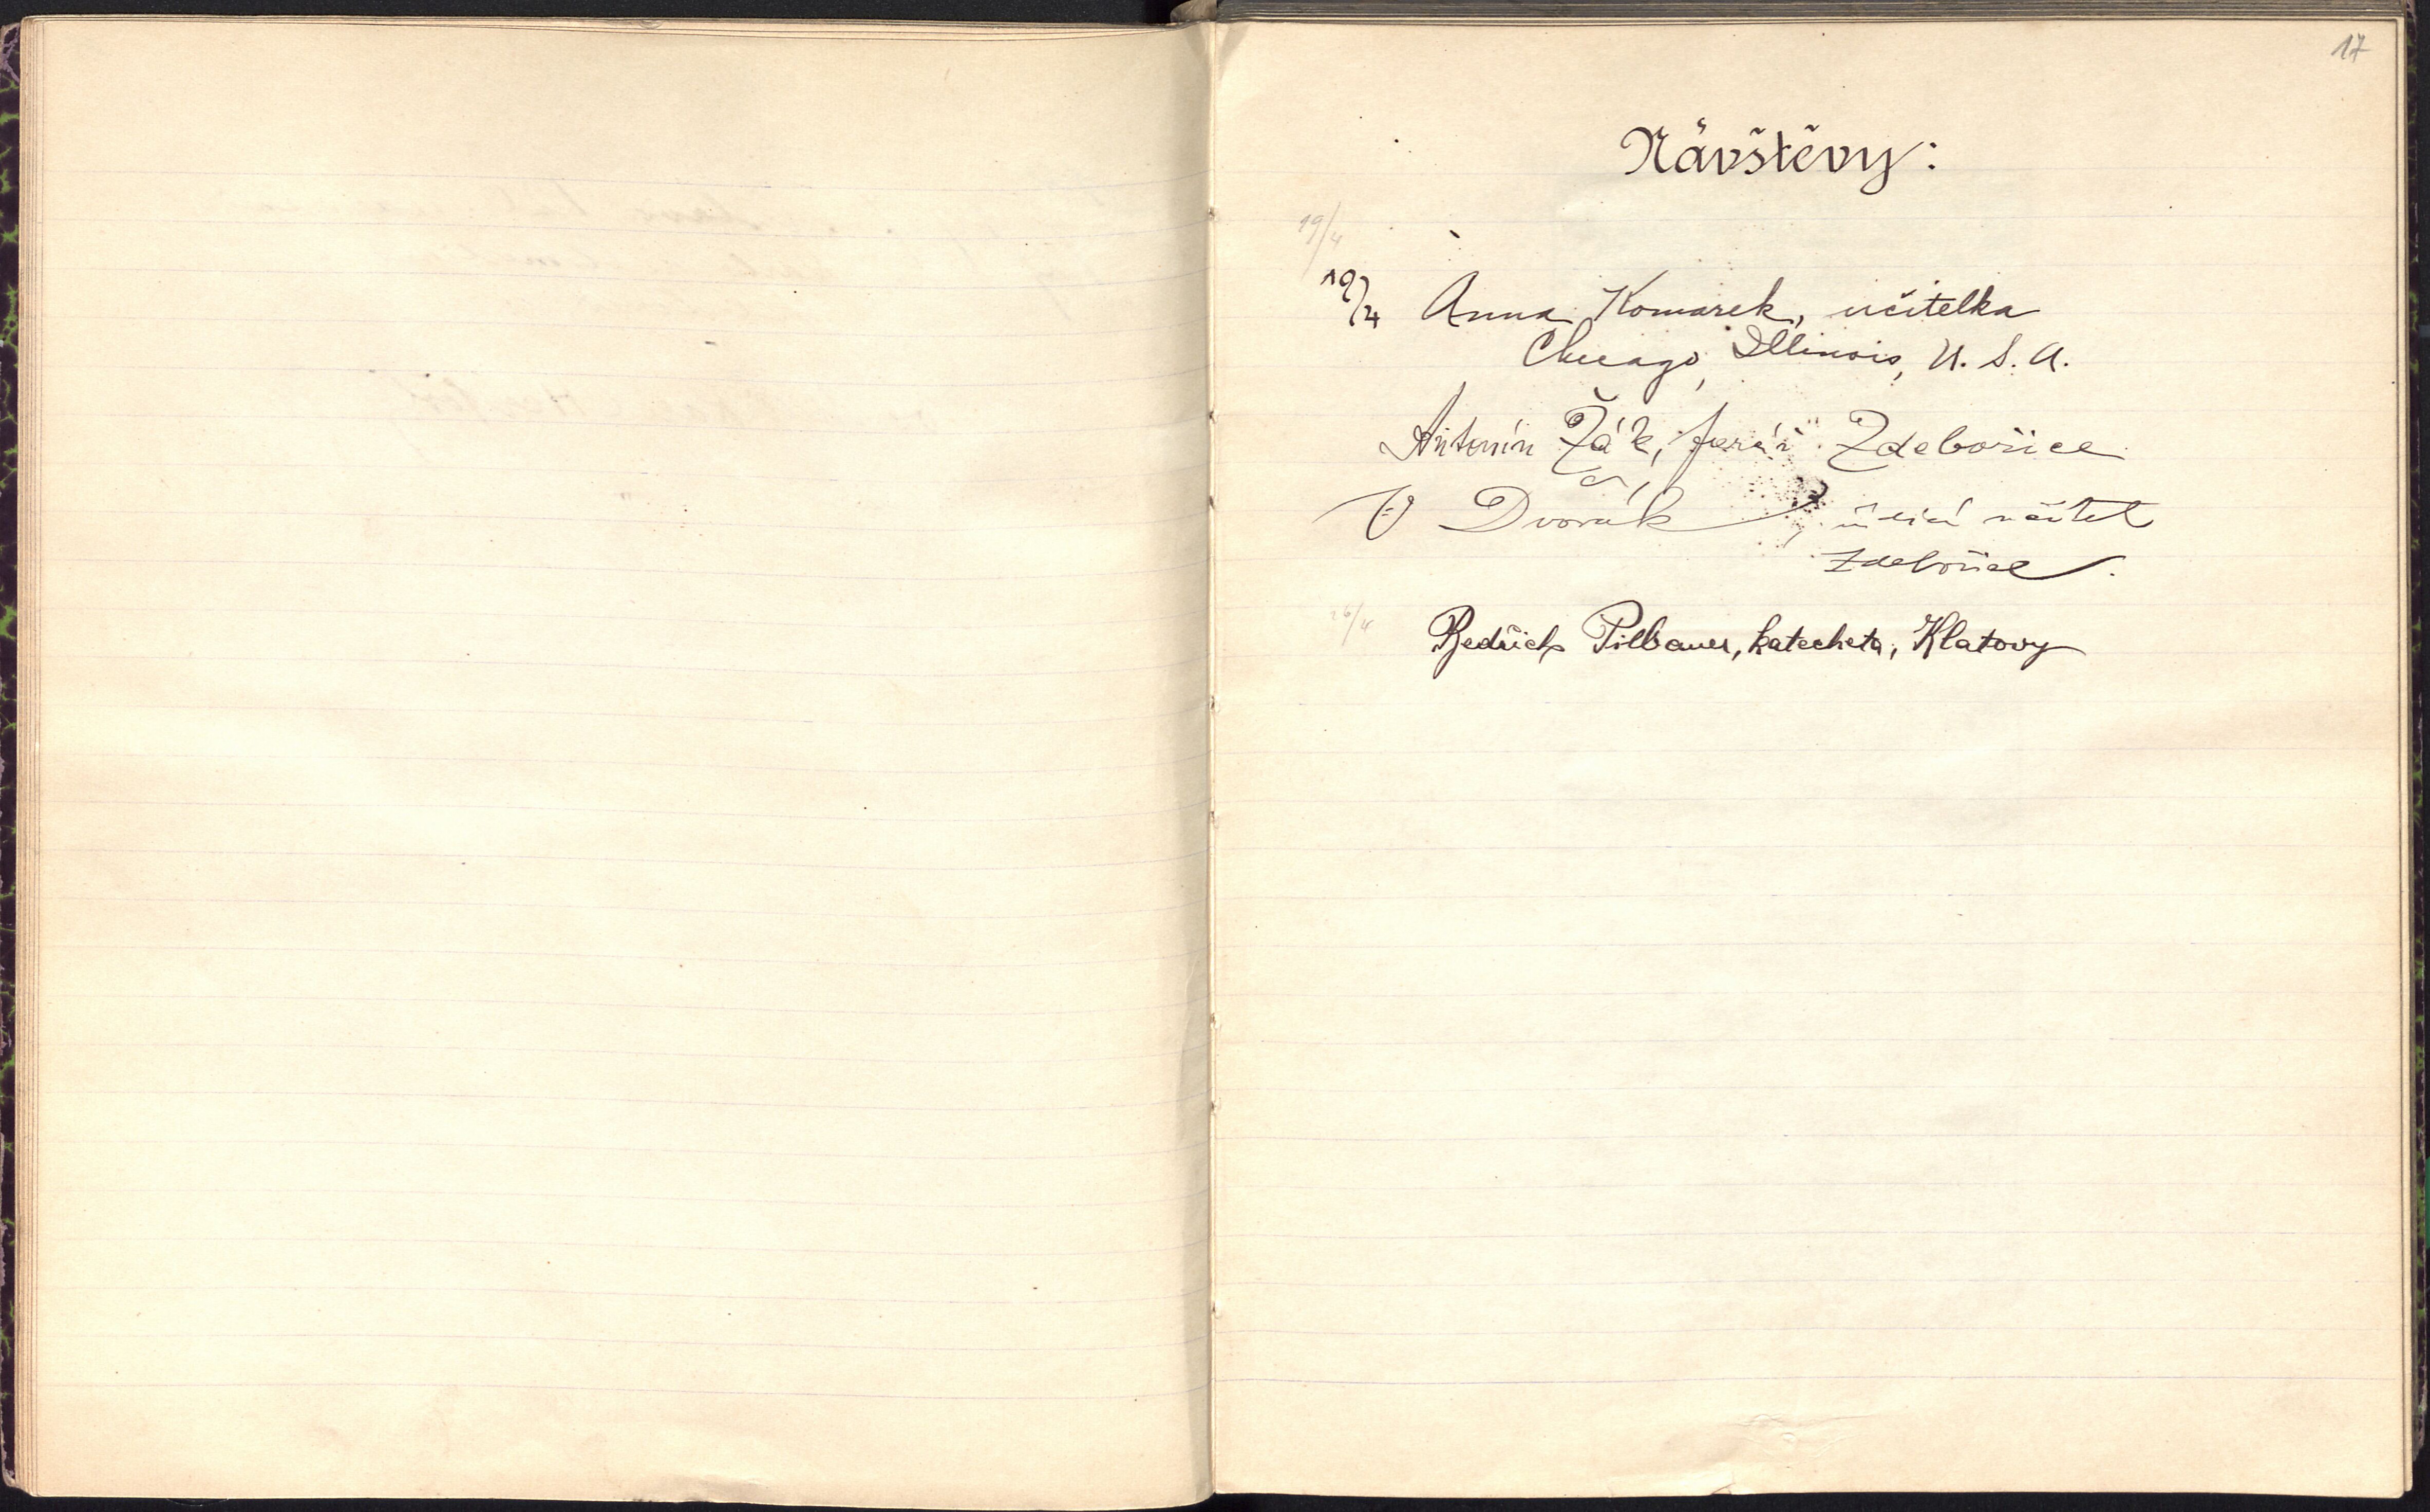 17
Návštěvy:
19/4
19/4 Anna Komarek, učitelka
Chicago, Illinois, U. S. A.
Antonín Žák, farář Zdebořice
V Dvořák, řídící učitel
Zdebořice.
26/4 Bedřich Pilbauer, katecheta, Klatovy